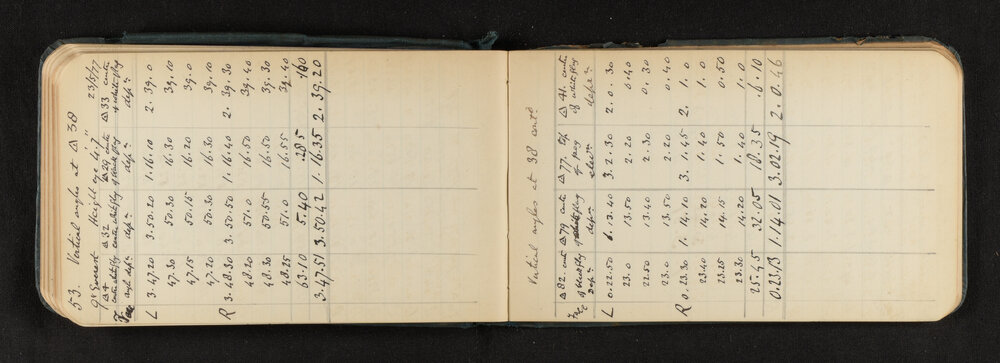 53. Vertical angles at △ 38
9" Everest Height eye 4.7" 23/5/77
△ 4 △ 32 △ 29 centre △ 33 centre
centre white flag centre white flag of black flag of white flag
Face angle depn depn depn depn
L 3.47.20 3.50.20 1.16.10 2.39.0
47.30 50.30 16.30 39.10
47.15 50.15 16.20 39.0
47.20 50.30 16.30 39.10
R 3.48.30 3.50.50 1.16.40 2.39.30
48.20 51.0 16.50 39.40
48.30 50.55 16.50 39.30
48.25 51.0 16.55 39.40
63.10 5.40 285 160
3.47.51 3.50.42 1.16.35 2.39.20
Vertical angles at 38 contd
△ 82. cent △ 79 cent △ 77. top △ 41. centre
Face of black flag of flag of peg of white flag
depn depn elevn depn
L 0.22.50 1.13.40 3.2.30 2.0.30
23.0 13.50 2.20 0.40
22.50 13.40 2.30 0.30
23.0 13.50 2.20 0.40
R 0.23.30 1.14.10 3.1.45 2.1.0
23.40 14.20 1.40 1.0
23.25 14.15 1.50 0.50
23.30 14.20 1.40 1.0
25.45 32.05 18.35 6.10
0.23.13 1.14.01 3.02.19 2.0.46